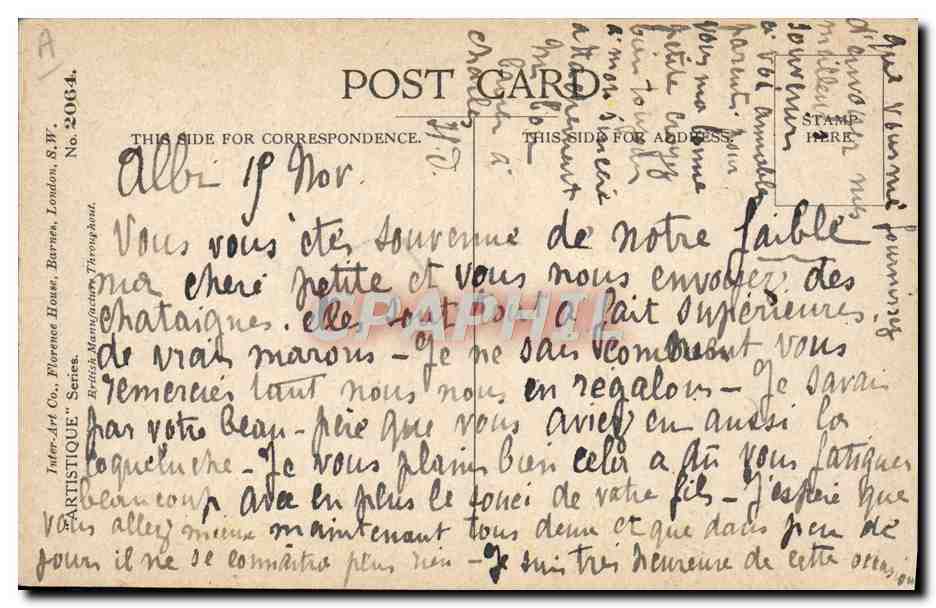 A
POST CARD
THIS SIDE FOR CORRESPONDENCE.
THIS SIDE FOR ADDRESS.
STAMP
HERE.
Albi 19 Nov.
Vous vous êtes souvenue de notre faible
ma cheré petite et vous nous envoyez des
chataignes. elles sont tout à fait supérieures.
de vrais marons - Je ne sais comment vous
remerciér tant nous nous en régalons - Je savais
par votre beau-père que vous aviez eu aussi la
coqueluche - Je vous plains bien cela a dû vous fatiguer
beaucoup avec en plus le souci de votre fils - J'espère que
vous allez mieux maintenant tous deux et que dans peu de
jours il ne se connaîtra plus rien - Je suis très heureuse de cette occasion
que vous me fournissez
d'envoyer mes
meilleurs
souvenirs
à vos aimables
parents, pour
vous ma bonne
petite croyez
bien toujours
à mon sincère
attachement
à
Charles
"ARTISTIQUE" Series.
British Manufacture Throughout.
Inter-Art Co., Florence House, Barnes, London, S.W.
No. 2064.
CPAPHIL